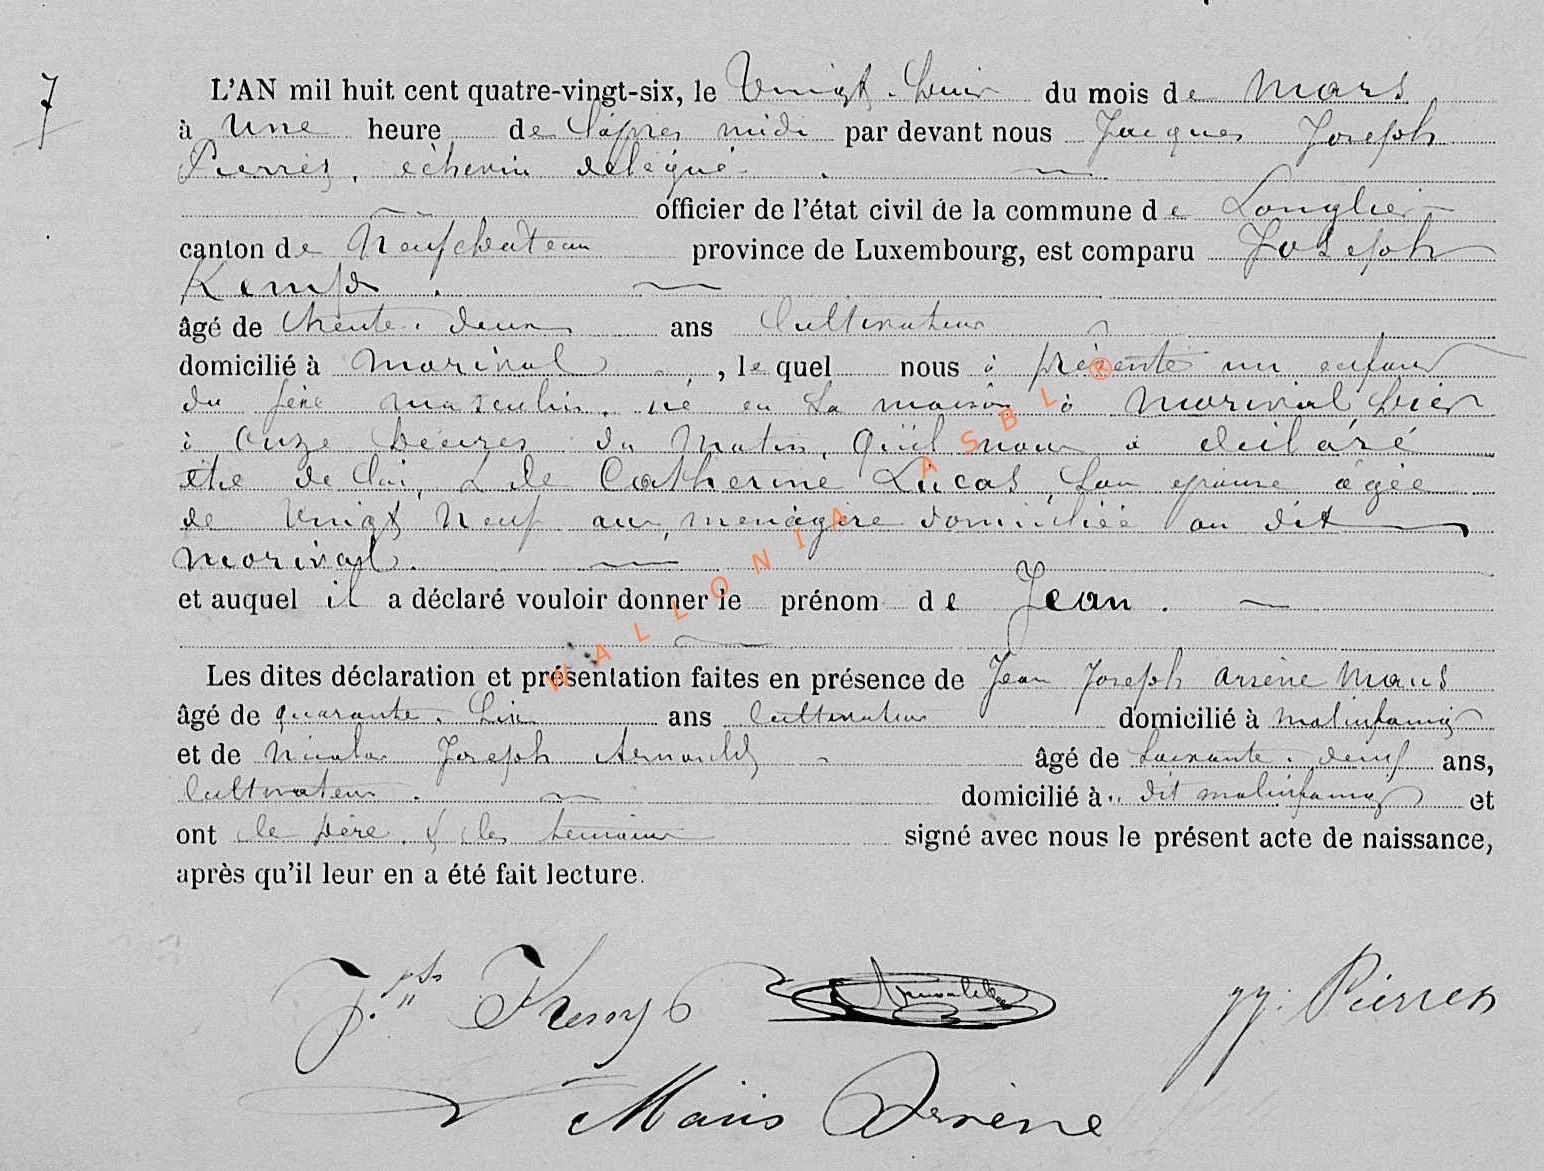 7
L'AN mil huit cent quatre-vingt-six, le Vingt-huit du mois de Mars
à Une heure de l'après midi par devant nous Jacques Joseph
Pierret, échevin délégué
officier de l'état civil de la commune de Longlier
canton de Neufchâteau province de Luxembourg, est comparu Joseph
Kemp
âgé de trente-deux ans Cultivateur
domicilié à Morival, lequel nous a présenté un enfant
du sexe masculin, né en sa maison à Morival hier
à Onze heures du Matin, qu'il nous a déclaré
être de lui, & de Catherine Lucas, son épouse âgée
de Vingt Neuf ans, ménagère domiciliée au dit
Morival.
et auquel il a déclaré vouloir donner le prénom de Jean.
Les dites déclaration et présentation faites en présence de Jean Joseph Arsène Maus
âgé de quarante-six ans Cultivateur domicilié à Molinfaing
et de Nicolas Joseph Arnould âgé de soixante-neuf ans,
Cultivateur. domicilié à dit Molinfaing et
ont le père & les témoins signé avec nous le présent acte de naissance,
après qu'il leur en a été fait lecture.
Jph Kemp Arnould JJ. Pierret
Maus Arsène
WALLONIA ASBL ®